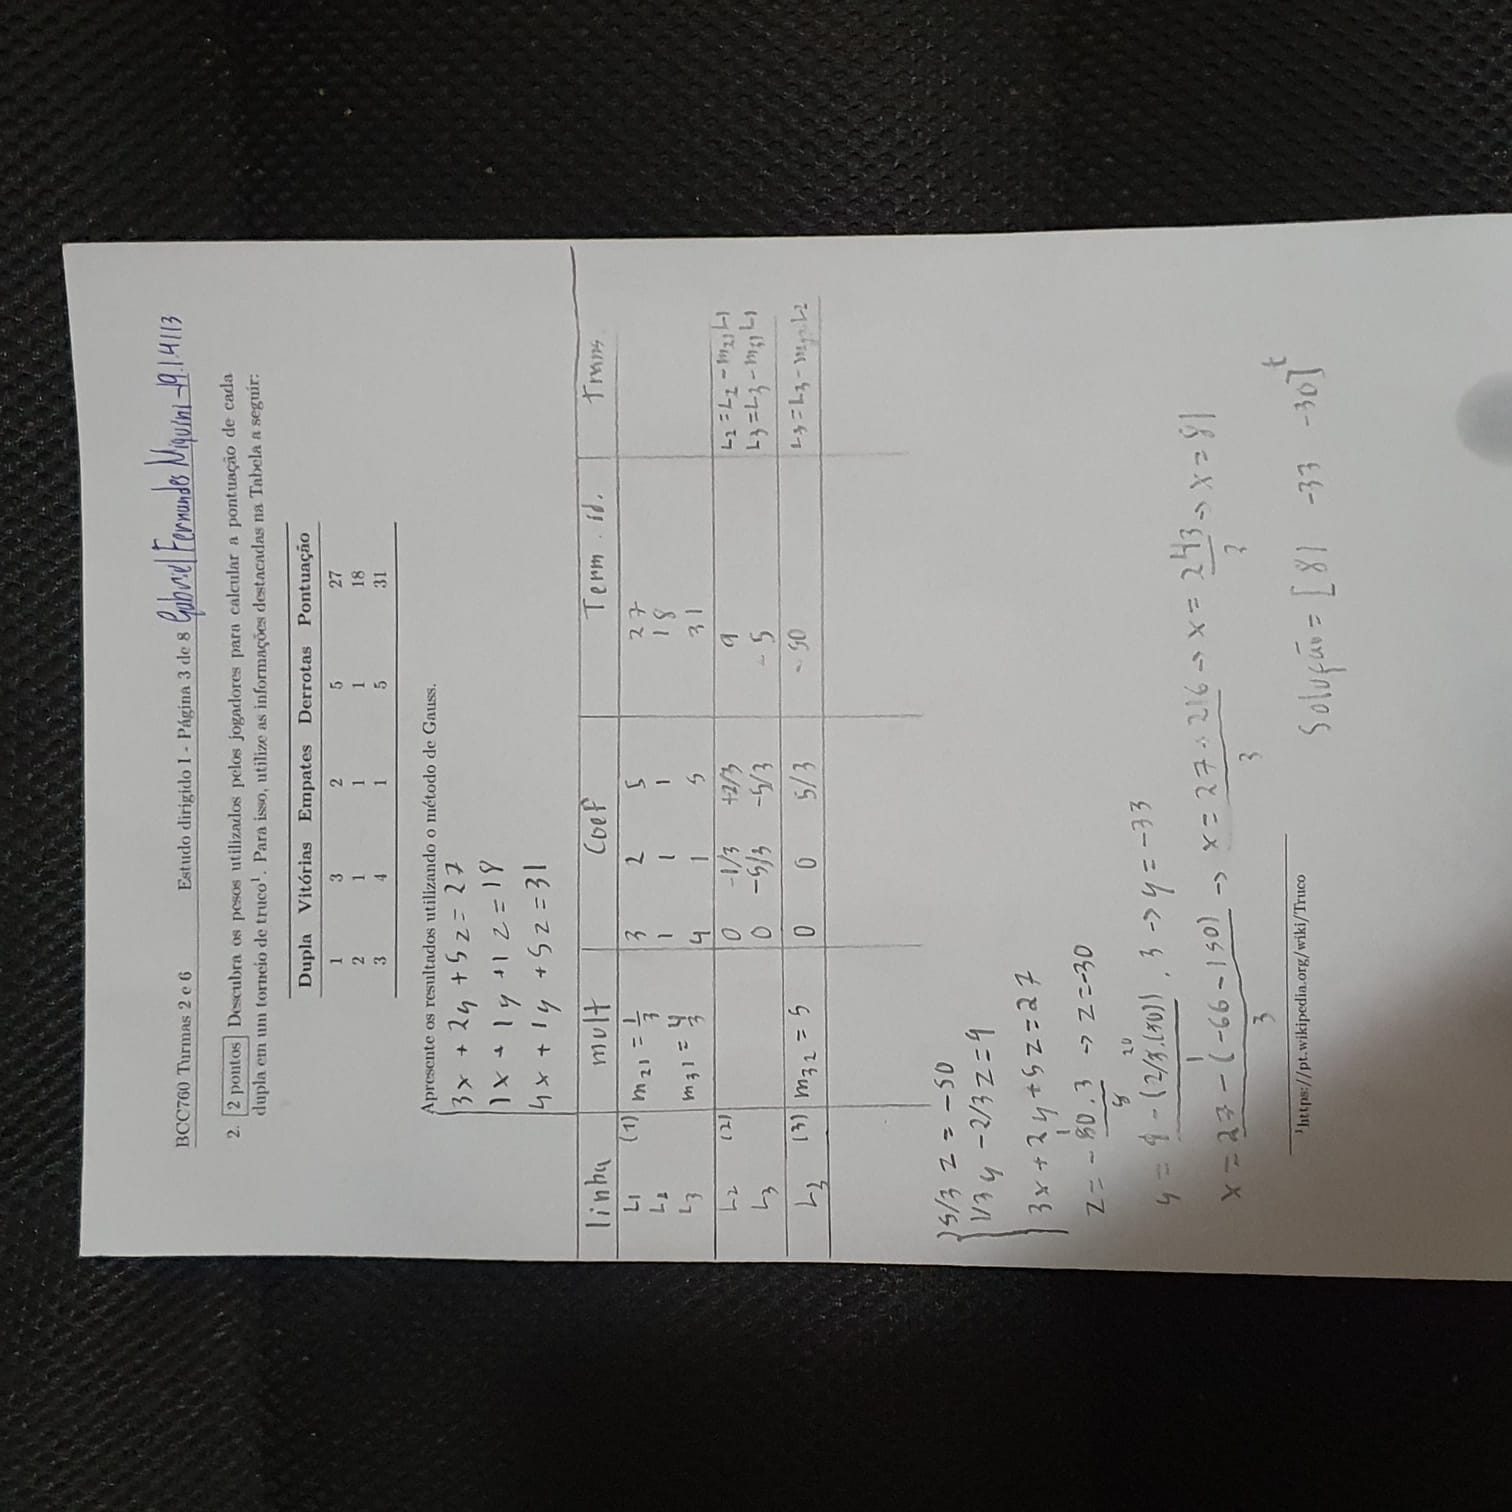 BCC760 Turmas 2 e 6 Estudo dirigido I - Página 3 de 8 Gabriel Fernandes Miquini - 19.1.4113
2. 2 pontos Descubra os pesos utilizados pelos jogadores para calcular a pontuação de cada
dupla em um torneio de truco¹. Para isso, utilize as informações destacadas na Tabela a seguir:
Dupla Vitórias Empates Derrotas Pontuação
1 3 2 5 27
2 1 1 1 18
3 4 1 5 31
Apresente os resultados utilizando o método de Gauss.
3x + 2y + 5z = 27
1x + 1y + 1z = 18
4x + 1y + 5z = 31
linha mult Coef Term. id. Trans
L1 (1) m21 = 1/3 3 2 5 27
L2 1 1 1 18
L3 m31 = 4/3 4 1 5 31
L2 (2) 0 -1/3 +2/3 9 L2 = L2 - m21 L1
L3 0 -5/3 -5/3 -5 L3 = L3 - m31 L1
L3 (3) m32 = 5 0 0 5/3 -50 L3 = L3 - m32. L2
5/3 z = -50
1/3 y - 2/3 z = 9
3x + 2y + 5z = 27
z = -50.3/5 -> z = -30
y = 9 - (2/3.(30))/1 . 3 -> y = -33
x = 27 - (-66 - 150)/3 -> x = 27 + 216/3 -> x = 243/3 -> x = 81
¹https://pt.wikipedia.org/wiki/Truco
Solução = [81 -33 -30]t